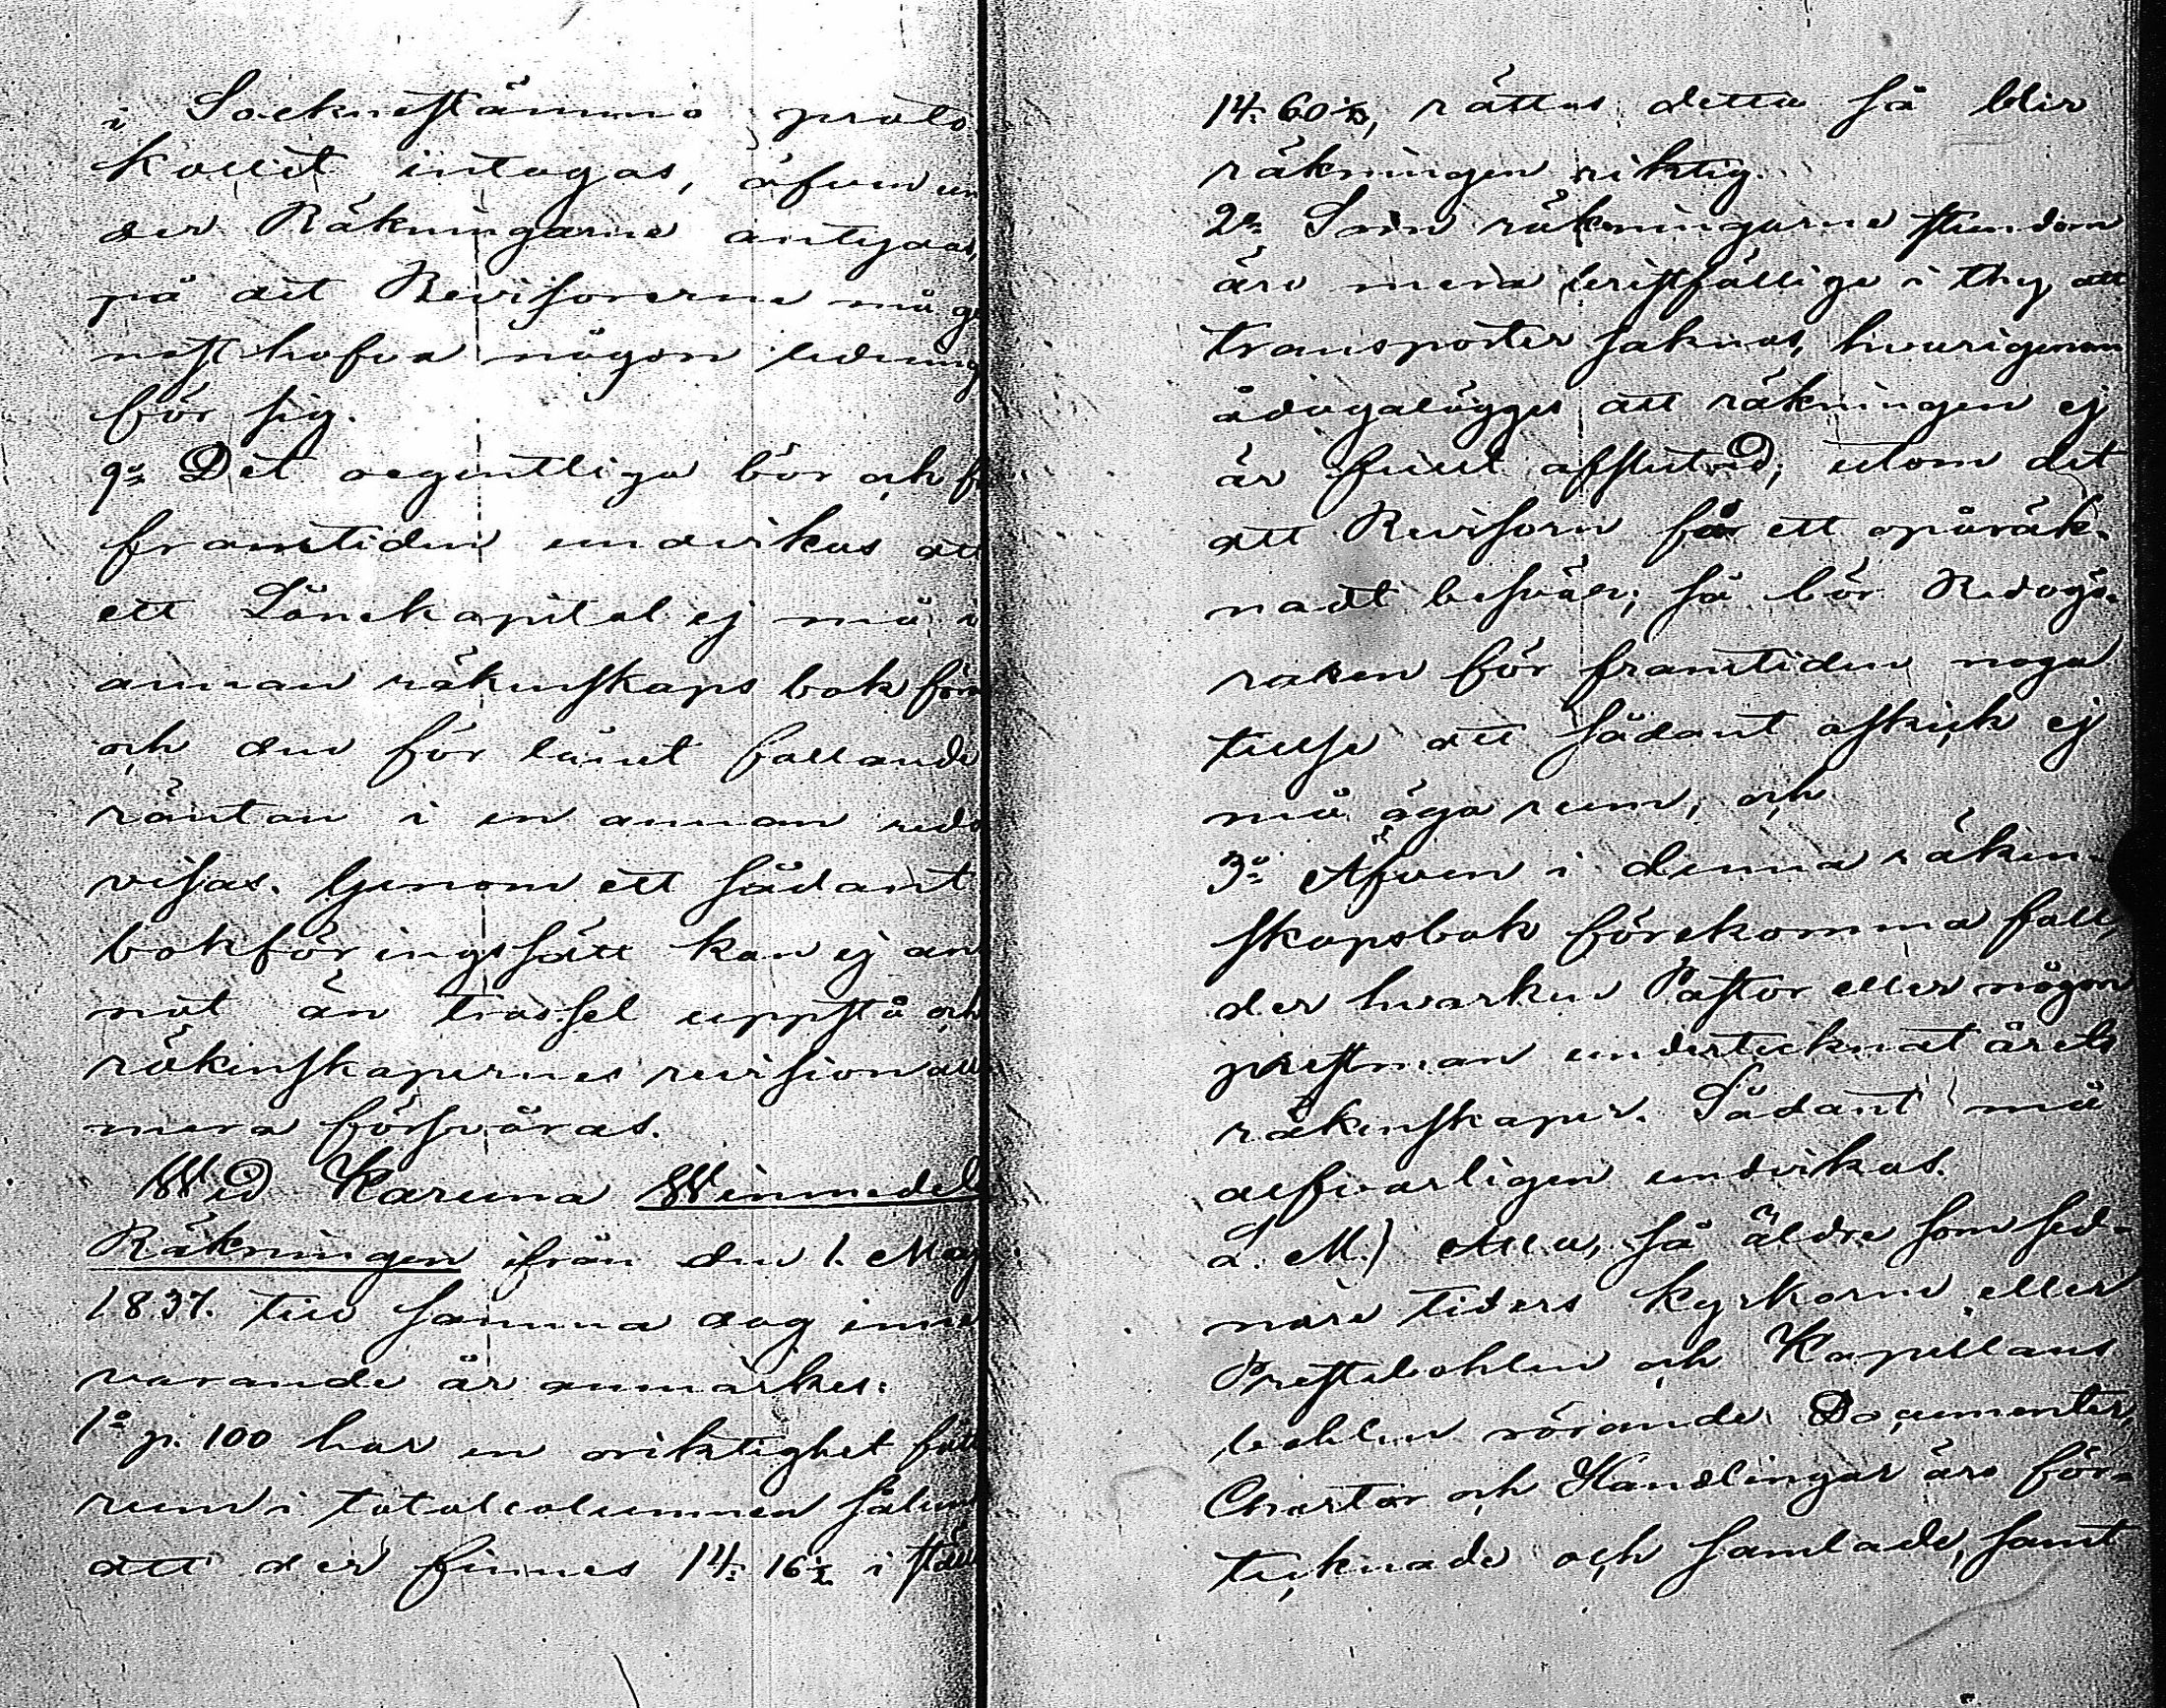 i Socknestämmo proto
kollet intagas, äfven un
der Räkningarne antydas,
på det Revisorerne må ge
nast hafva någon ledning
för sig.
9:o Det oegentliga bör och f
framtiden undvikas att
ett Lånekapital ej må i
annan räkenskaps bok föra
och den för lånet fallande
räntan i en annan redo
visas. Genom ett sådant
bokföringssätt kan ej an
nat än trassel uppstå och
räkenskapernes revision all
mera försvåras.
Wid Karuna Winmedels
Räkningen ifrån den 1. Maj
1837. till samma dag inne
varande år anmärkes:
1:o p. 100 har en oriktighet fått
rum i totalcolumnen sålun
att der finnes 14: 16 1/2 i ställ
14: 60 1/2, rättas detta så blir
räkningen riktig.
2:o Som räkningarne stundom
äro mera bristfällige i thy att
transporter saknas, hvarigenom
ådagalägges att räkningen ej
är fullt afslutad; utom det
att Revisorn får ett opåräk-
nadt besvär; så bör Redogö-
raren för framtiden noga
tillse att sådant afskick ej
må äga rum; och
3:o Äfven i denna räken-
skapsbok förekomma fall,
der hvarken Pastor eller någon
prestman undertecknat årets
räkenskaper. Sådant må
alfvarligen undvikas.
L. M.) Alla, så äldre som sed-
nare tiders kyrkorne eller
Prestebohlen och Kapellans
bohlen rörande Documenter,
Chartor och Handlingar äro för-
tecknade och samlade, samt